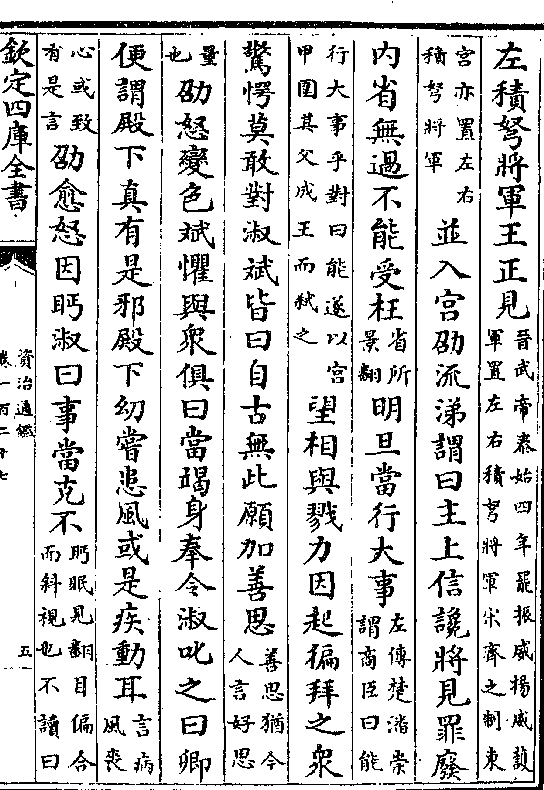 左積弩將軍王正見晉武帝泰始四年罷振威揚威䕶軍置左右積弩將軍宋齊之制東
宮亦置左右積弩將軍並入宮劭流涕謂曰主上信讒將見罪廢
内省無過不能受枉省所景翻明旦當行大事左傳楚潘崇謂商臣曰能
行大事乎對曰能遂以宮甲圍其父成王而弑之望相與戮力因起徧拜之衆
驚愕莫敢對淑斌皆曰自古無此願加善思善思猶今人言好思
量也劭怒變色斌懼與衆俱曰當竭身奉令淑叱之曰卿
便謂殿下真有是邪殿下幼嘗患風或是疾動耳言病風喪
心或致有是言劭愈怒因眄淑曰事當克不眄眠見翻目偏合而斜視也不讀曰
欽定四庫全書
資治通鑑
卷一百二十七
五